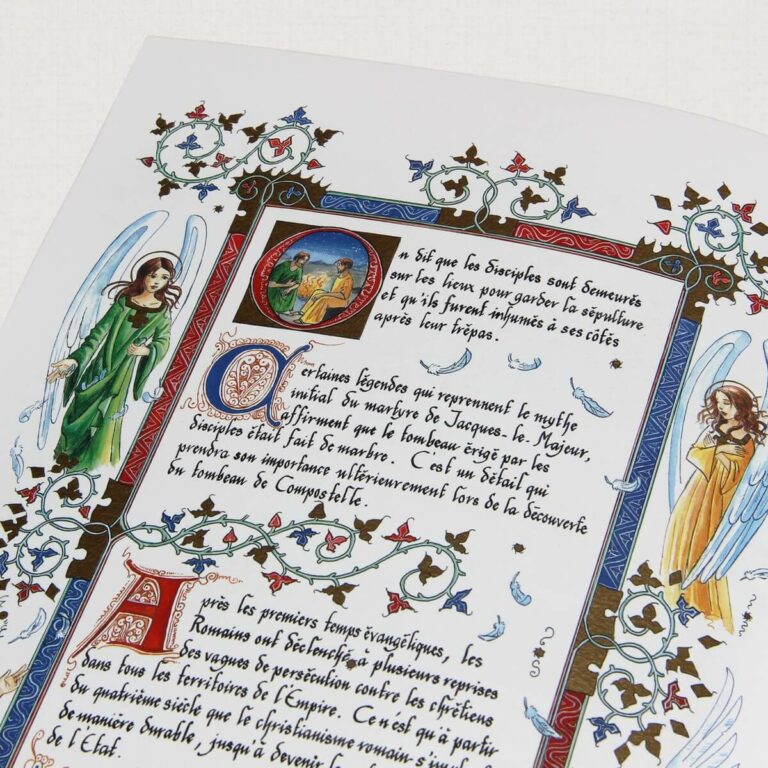 On dit que les disciples sont demeurés
sur les lieux pour garder la sépulture
et qu'ils furent inhumés à ses côtés
après leur trépas.
Certaines légendes qui reprennent le mythe
initial du martyre de Jacques-le-Majeur,
affirment que le tombeau érigé par les
disciples était fait de marbre. C'est un détail qui
prendra son importance ultérieurement lors de la découverte
du tombeau de Compostelle.
Après les premiers temps évangéliques, les
Romains ont déclenché à plusieurs reprises
des vagues de persécution contre les chrétiens
dans tous les territoires de l'Empire. Ce n'est qu'à partir
du quatrième siècle que le christianisme romain s'impl
de manière durable, jusqu'à devenir
de l'Etat.